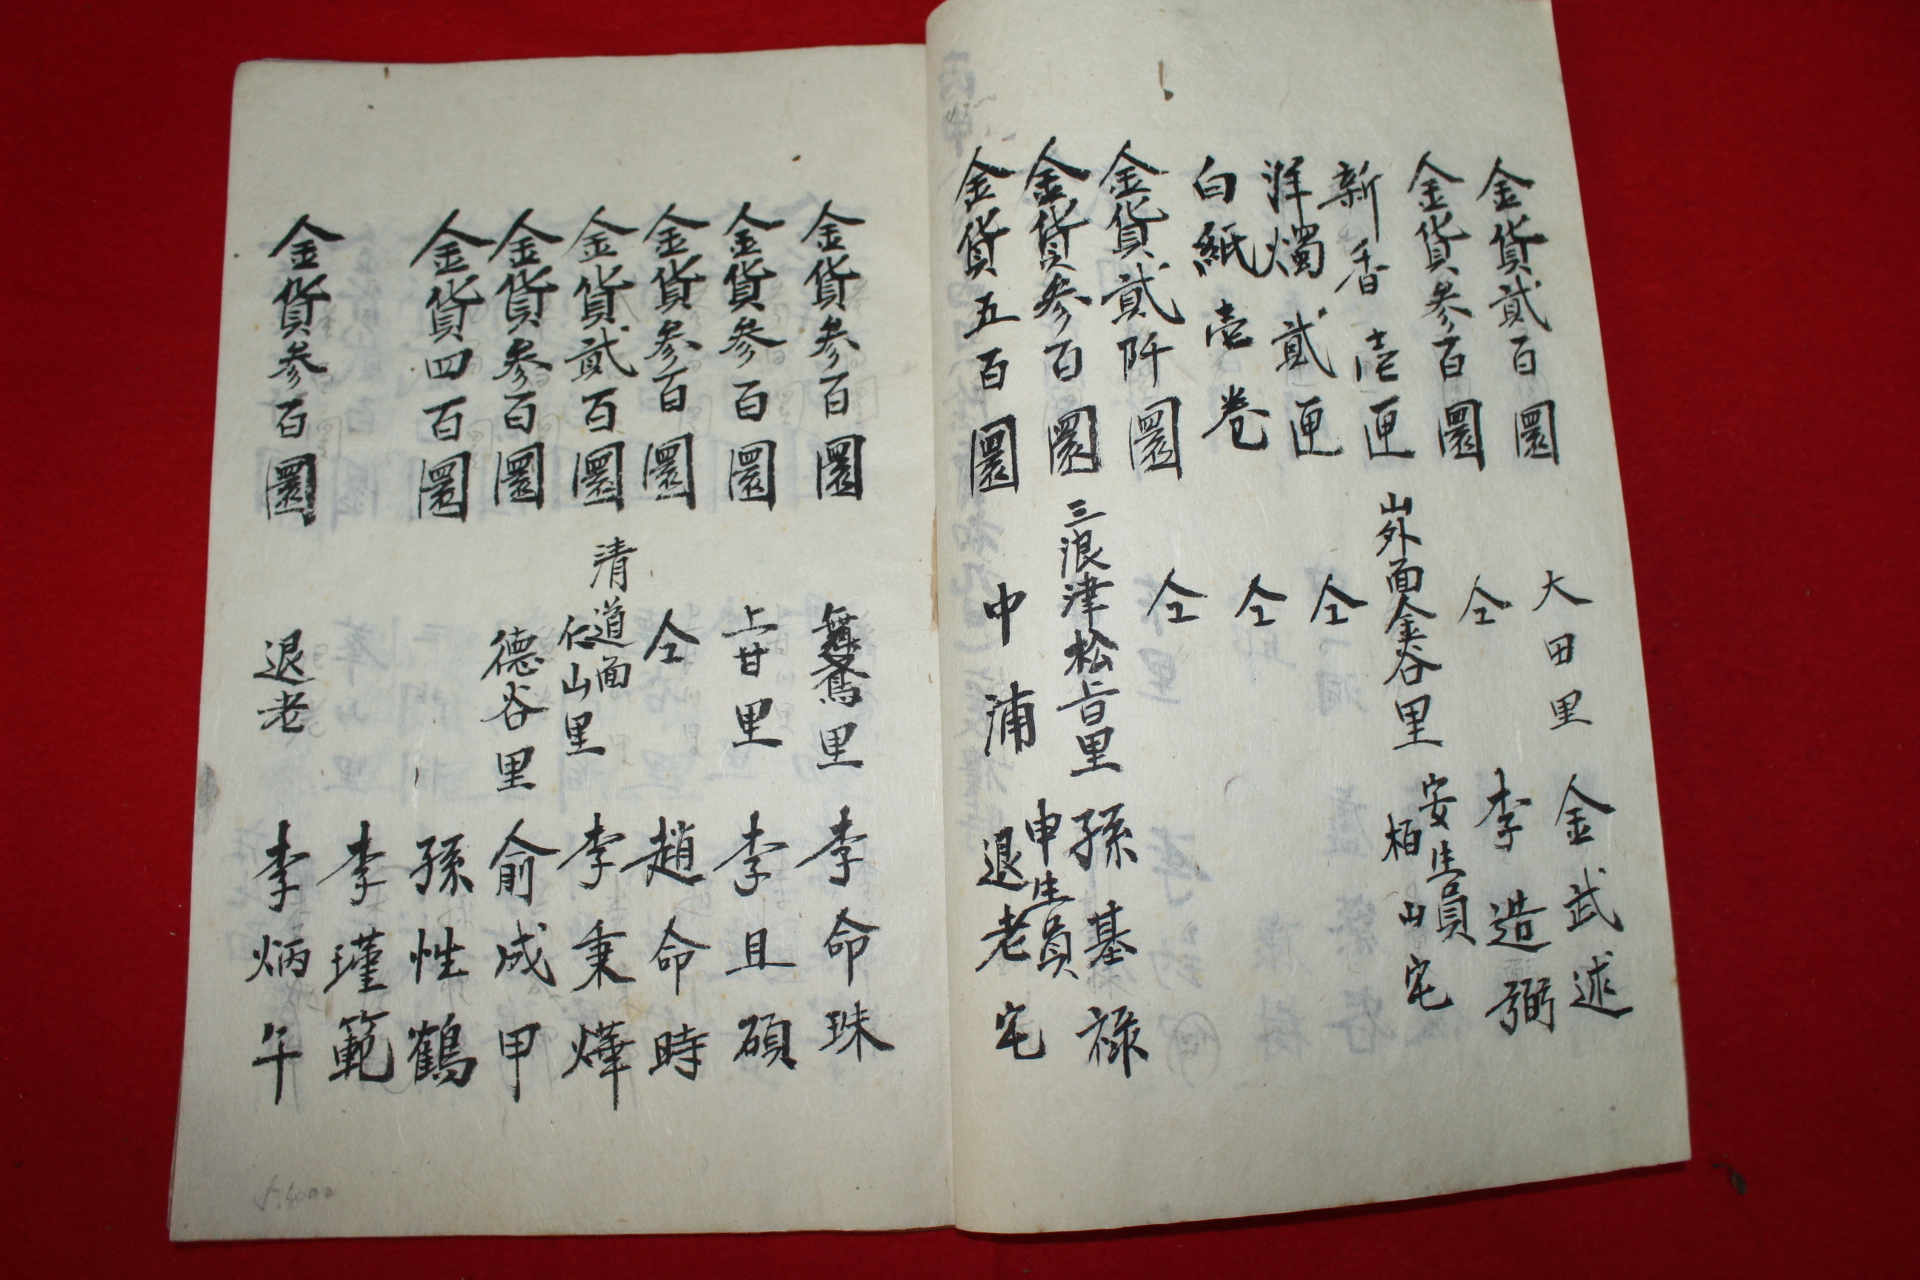 金貨貳百圜 大田里 金武述
金貨參百圜 仝 李造弼
新香壱匣 山外面金谷里 安生員 栢山宅
洋燭貳匣 仝
白紙壱卷 仝
金貨貳阡圜 仝
金貨參百圜 三浪津松旨里 孫基祿
金貨五百圜 中浦 申生員 退老宅
金貨參百圜 舞鳶里 李命珠
金貨參百圜 上甘里 李且碩
金貨參百圜 仝 趙命時
金貨貳百圜 清道面仁山里 李秉燁
金貨參百圜 德谷里 俞成甲
金貨四百圜 孫性鶴
李瑾範
金貨參百圜 退老 李炳午